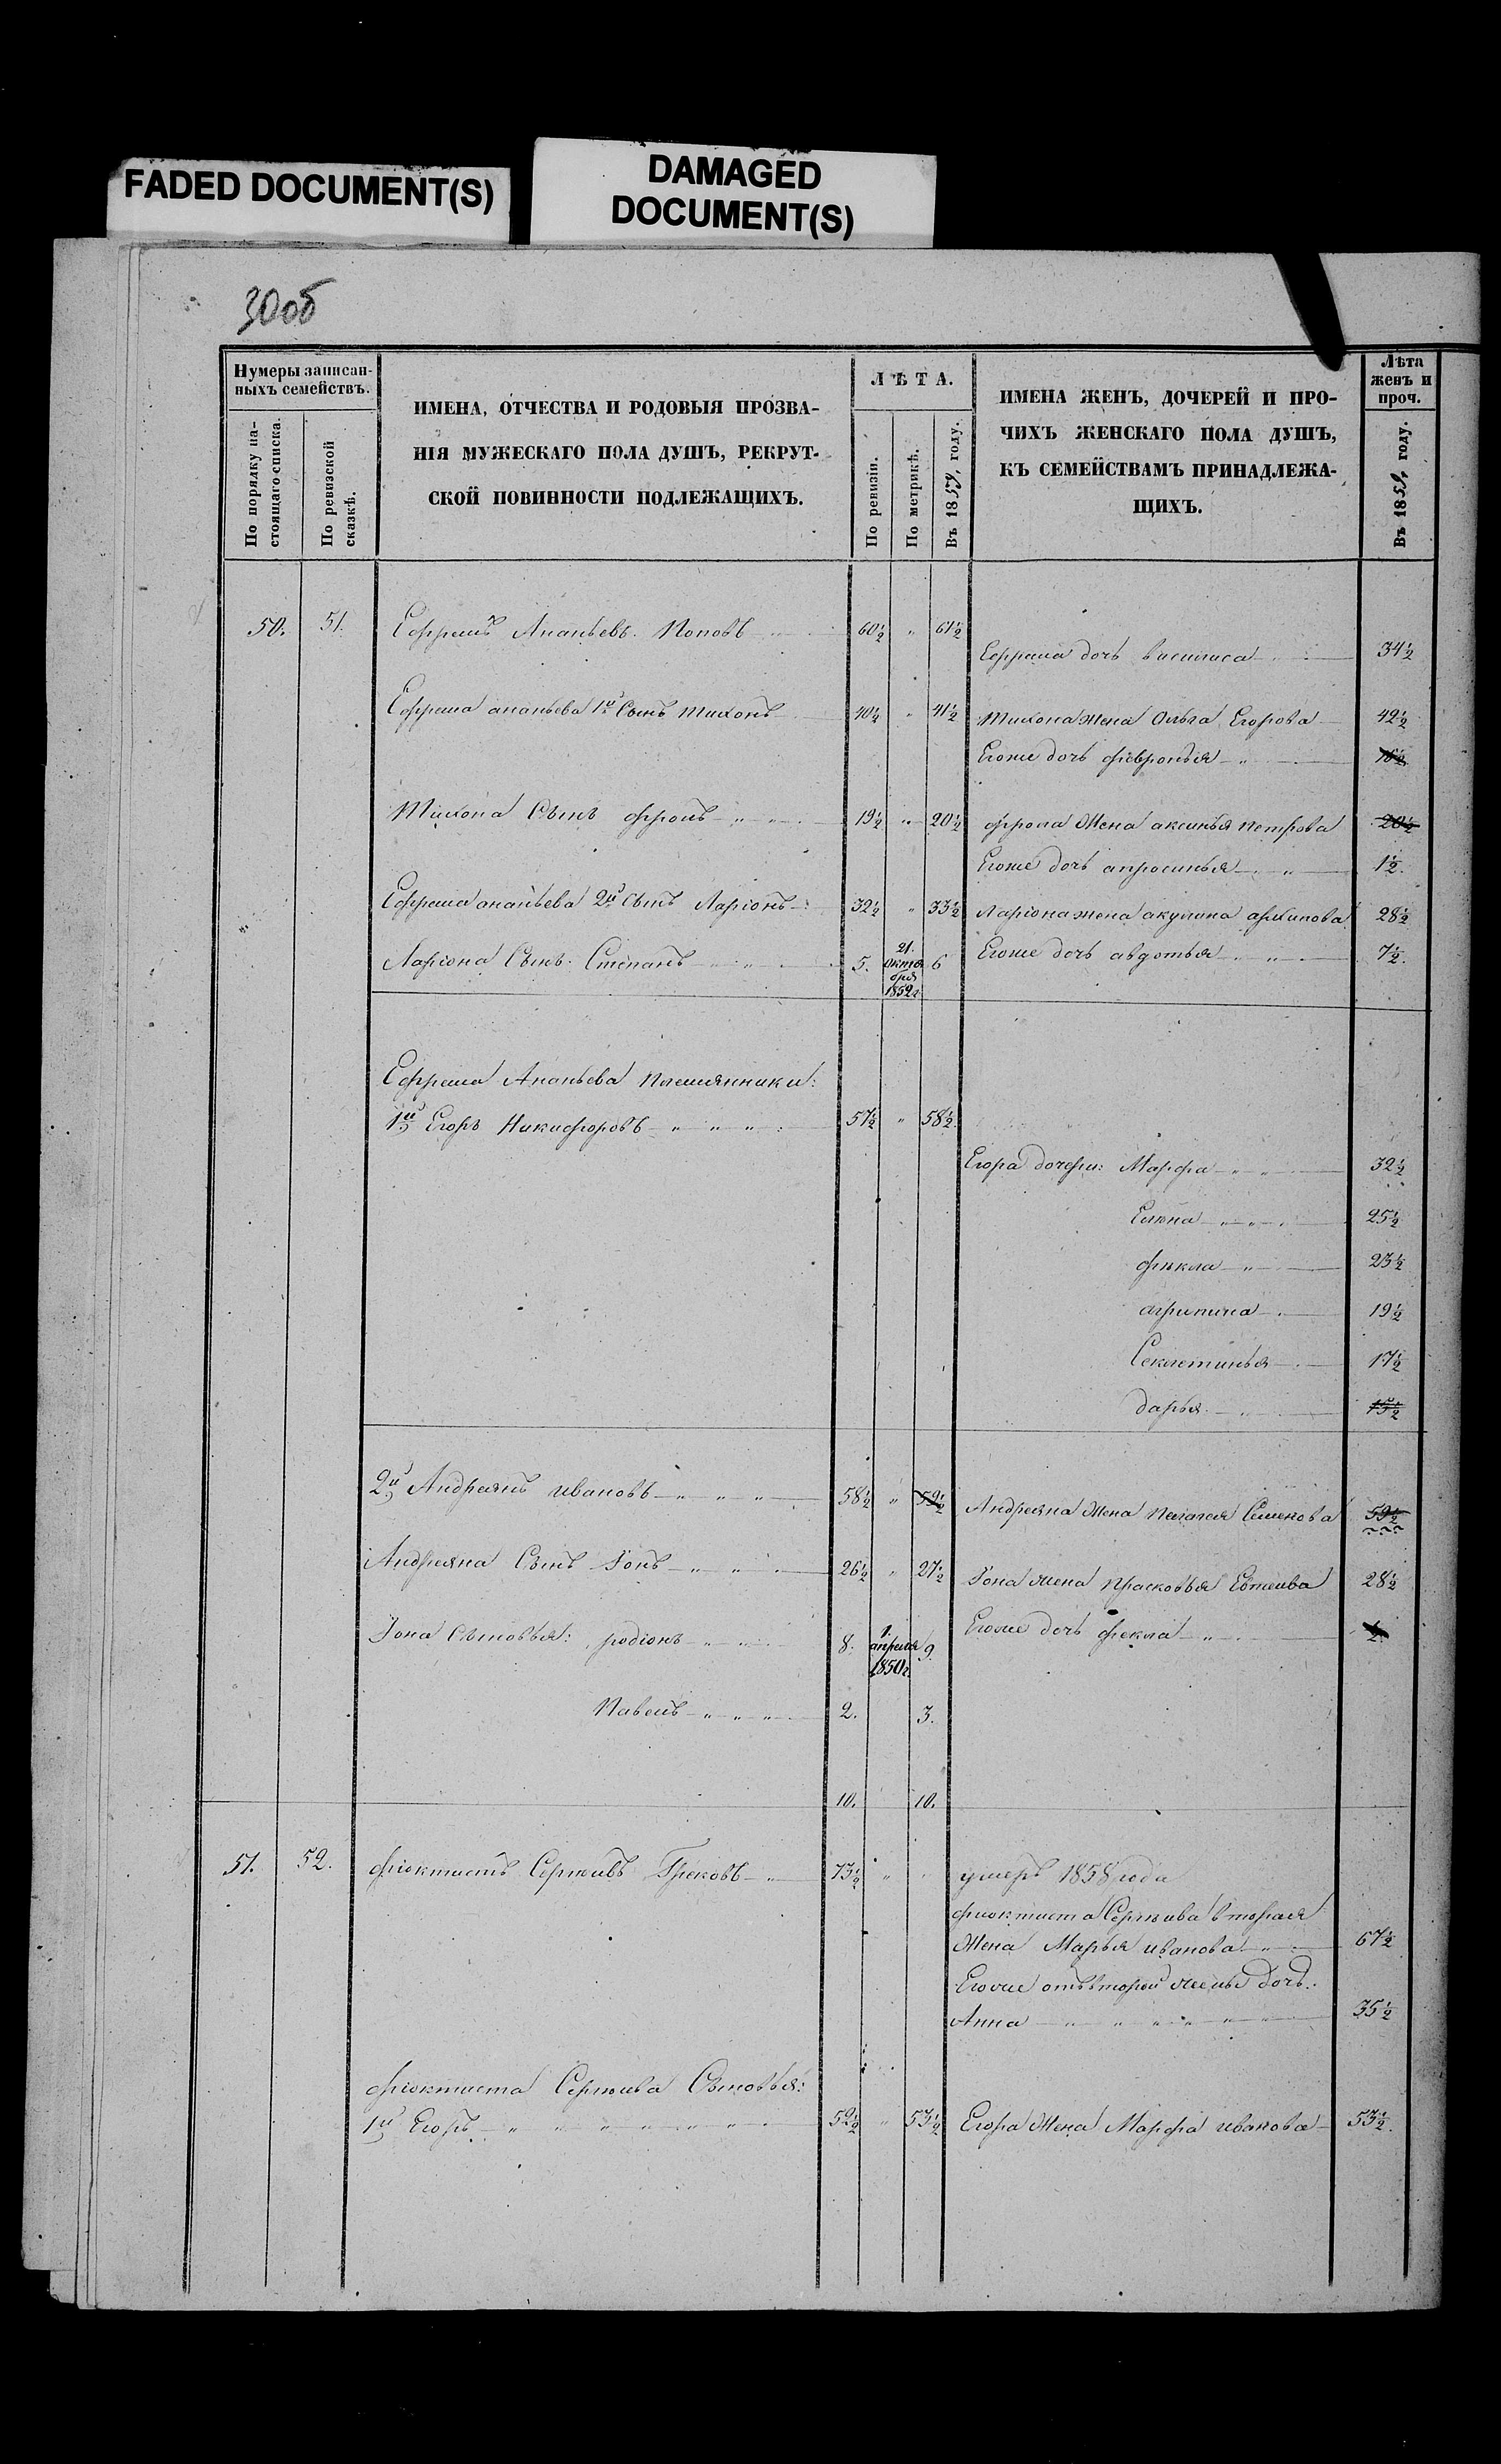 FADED DOCUMENT(S)
DAMAGED
DOCUMENT(S)
30об
Нумеры записан-
ныхъ семействъ.
По порядку на-
стоящаго списка.
По ревизской
сказкѣ.
ИМЕНА, ОТЧЕСТВА И РОДОВЫЯ ПРОЗВА-
НІЯ МУЖЕСКАГО ПОЛА ДУШЪ, РЕКРУТ-
СКОЙ ПОВИННОСТИ ПОДЛЕЖАЩИХЪ.
ЛѢТА.
По ревизіи.
По метрикѣ.
Въ 1859, году.
ИМЕНА ЖЕНЪ, ДОЧЕРЕЙ И ПРО-
ЧИХЪ ЖЕНСКАГО ПОЛА ДУШЪ,
КЪ СЕМЕЙСТВАМЪ ПРИНАДЛЕЖА-
ЩИХЪ.
Лѣта
женъ и
проч.
Въ 1859, году.
50. 51. Ефремъ Ананьевъ Поповъ 60½ " 61½
Ефрема дочь василиса 34½
Ефрема ананьева 1й Сынъ тихонъ 40½ " 41½ Тихона жена Ольга Егорова 42½
Егоже дочь февронья 16½
Тихона Сынъ фролъ 19½ " 20½ фрола Жена аксинья петрова 20½
Егоже дочь апросинья 1½.
Ефрема ананьева 2й Сынъ Ларіонъ 32½ " 33½ Ларіона жена акулина архипова 28½
Ларіона Сынъ Степанъ 5. 21. октября 1852г 6 Егоже дочь авдотья 7½.
Ефрема Ананьева Племянники:
1й Егоръ Никифоровъ 57½ " 58½.
Егора дочери: Марфа 32½
Елена 25½
фекла 23½
агрипина 19½
Секлетинья 17½
дарья 15½
2й Андреянъ ивановъ 58½ " 59½ Андреяна Жена Пелагея Семенова 59½
Андреяна Сынъ Іонъ 26½ " 27½ Іона жена прасковья Евтеива 28½
Іона Сыновья: родіонъ 8. 1. апреля 1850г. 9. Егоже дочь фекла ½
Павелъ 2. 3.
10. 10.
51. 52. фіоктистъ Сергеивъ Грековъ 73½ " умеръ 1858 года
фиоктиста Сергеива вторая
Жена Марья иванова 67½
Егоже отъ второй жены дочь:
Анна 35½
фіоктиста Сергеива Сыновья:
1й Егоръ 52½ " 53½ Егора Жена Марфа иванова 53½.